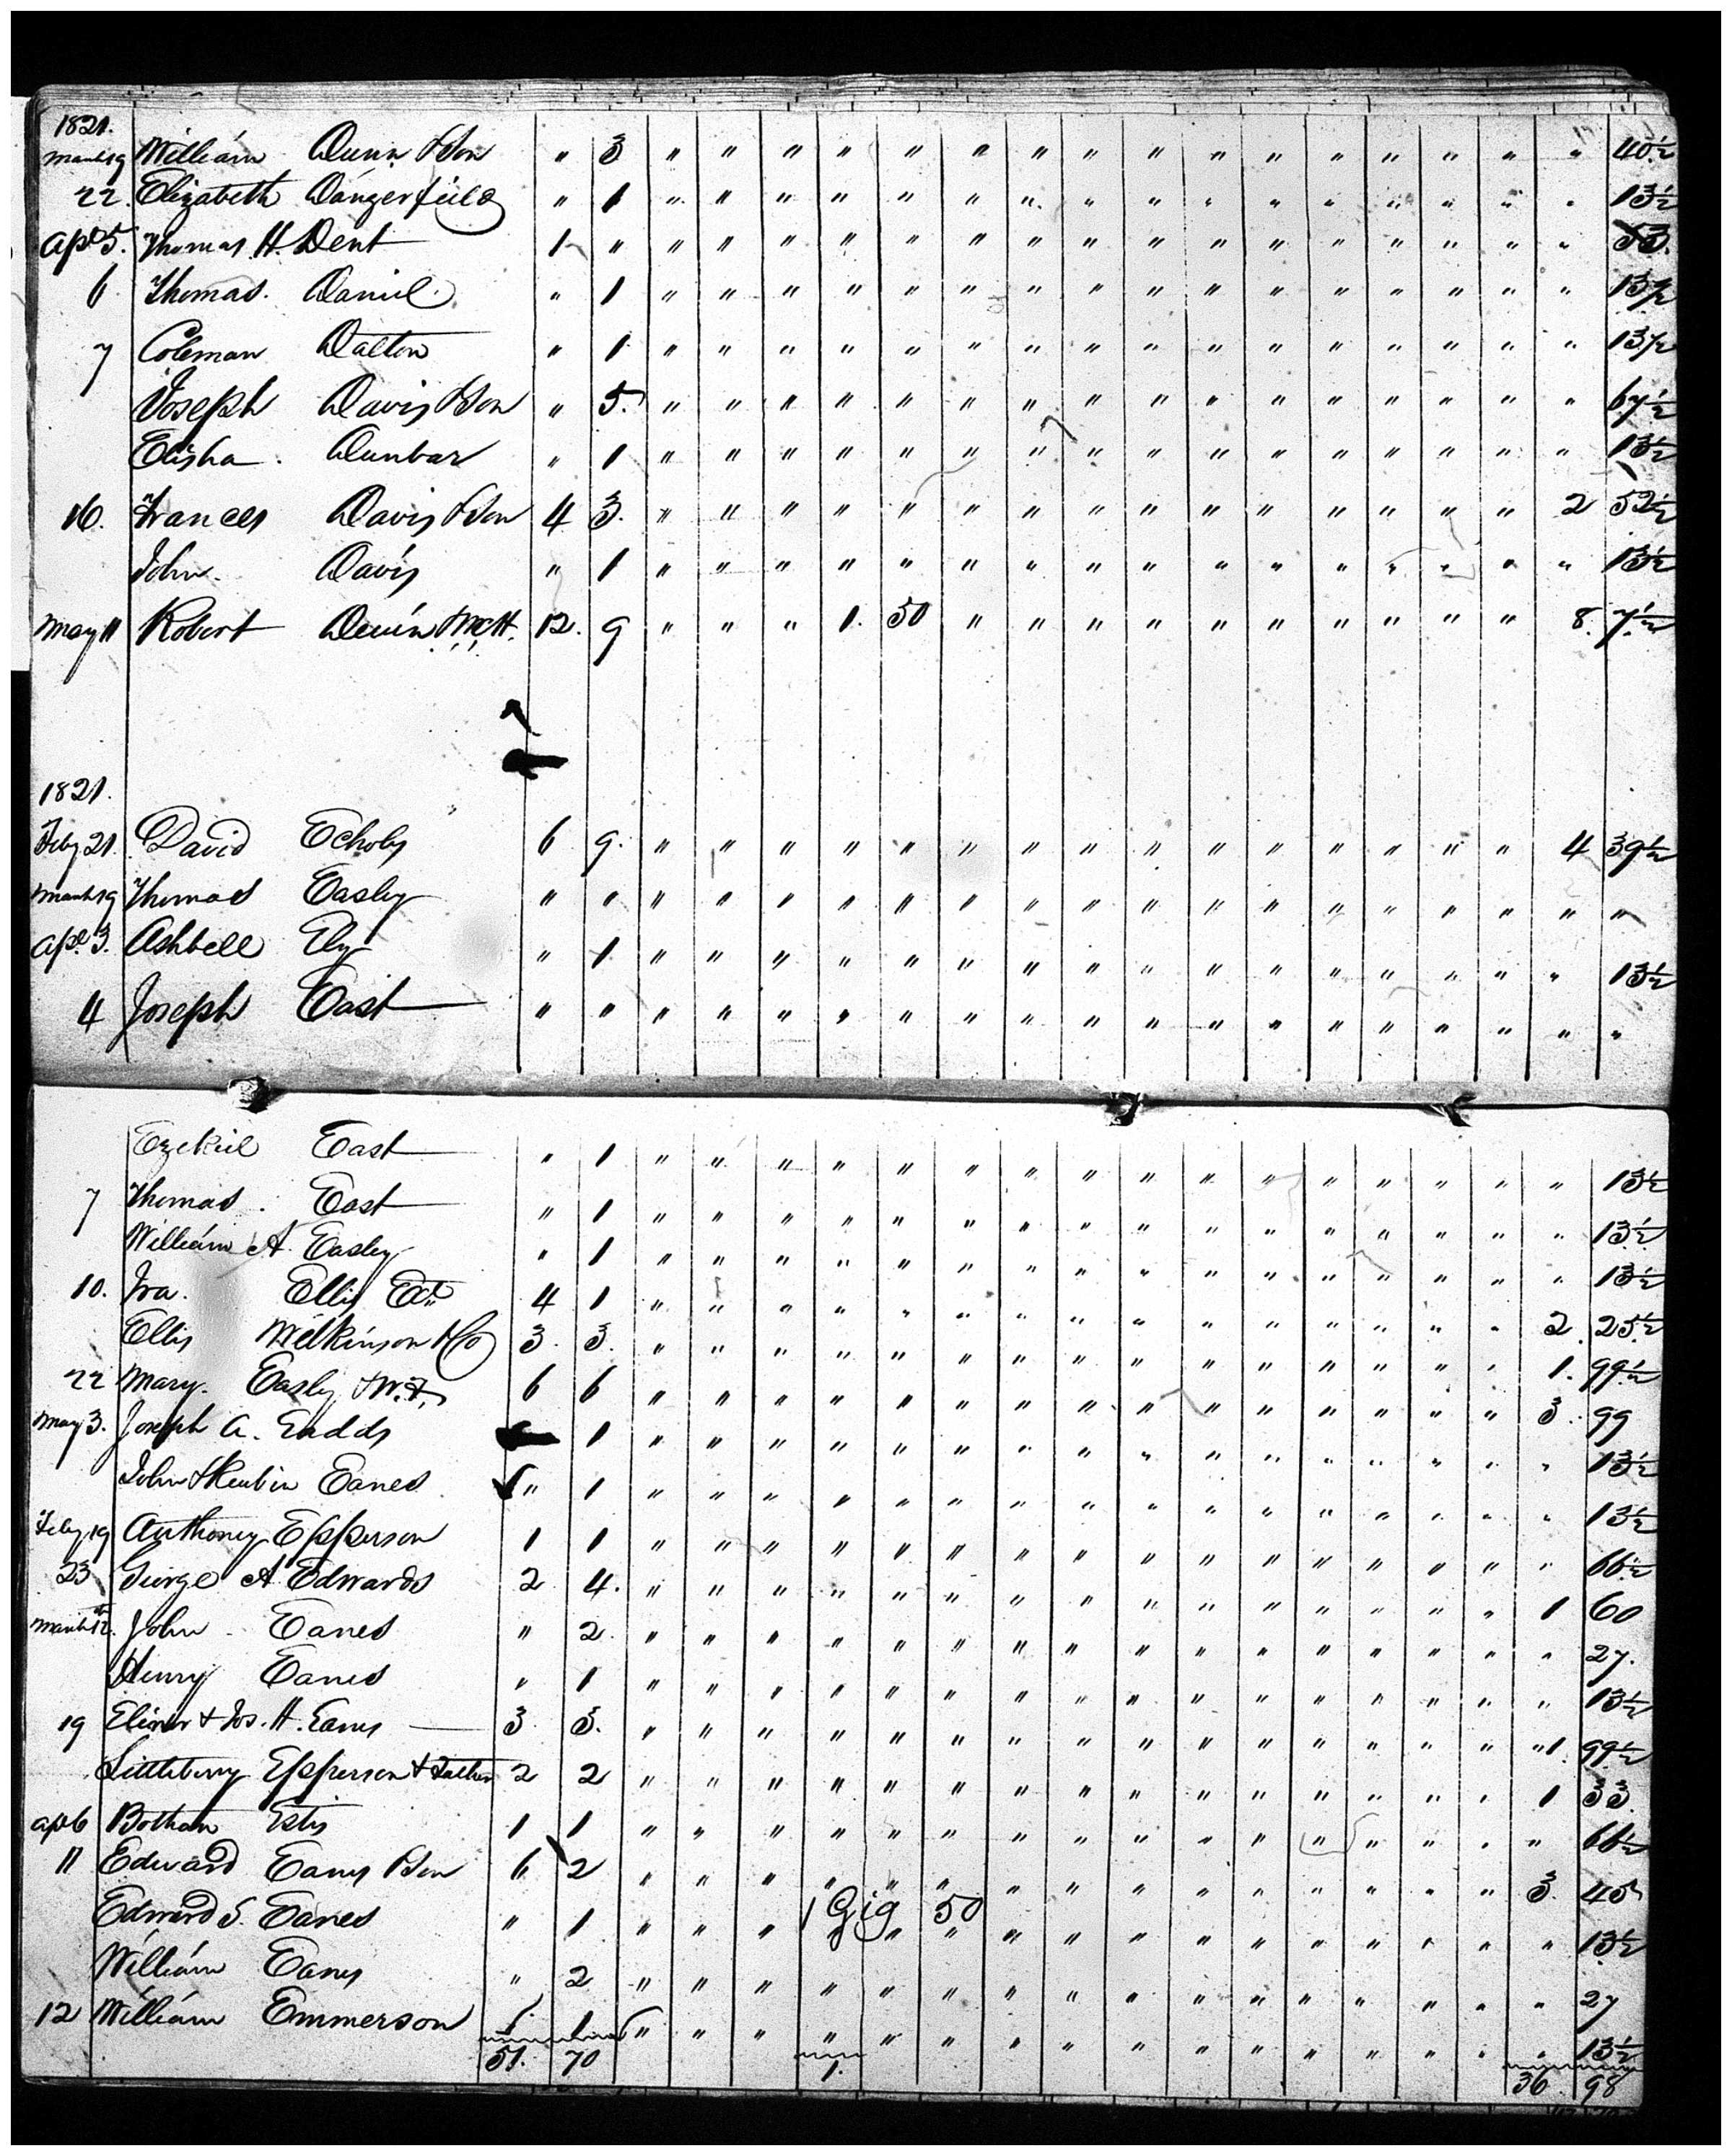 1821.
March 19 William Dunn & Son " 3 " " " " " " " " " " " " " " " " 40½
22. Elizabeth Dangerfield " 1 " " " " " " " " " " " " " " " " 13½
Apl 5. Thomas H. Dent 1 " " " " " " " " " " " " " " " " " 53.
6 Thomas. Daniel " 1 " " " " " " " " " " " " " " " " 13½
7 Coleman Dalton " 1 " " " " " " " " " " " " " " " " 13½
Joseph Davis & Son " 5. " " " " " " " " " " " " " " " " 67½
Elisha. Dunbar " 1 " " " " " " " " " " " " " " " " 13½
16. Frances Davis & Son 4 3. " " " " " " " " " " " " " " " 2 52½
John. Davis " 1 " " " " " " " " " " " " " " " " 13½
May 11 Robert 12. 9 " " " 1. 50 " " " " " " " " " " 8. 7½
1821.
Feby 21. David Echols 6 9. " " " " " " " " " " " " " " " 4 39½
March 19 Thomas Easley " " " " " " " " " " " " " " " " " " "
Apl. 3. Ashbell Ely " 1 " " " " " " " " " " " " " " " " 13½
4 Joseph East " " " " " " " " " " " " " " " " " " "
Ezekiel East " 1 " " " " " " " " " " " " " " " " 13½
7 Thomas. East " 1 " " " " " " " " " " " " " " " " 13½
William A. Easley " 1 " " " " " " " " " " " " " " " " 13½
10. Ira. Ellis Est 4 1 " " " " " " " " " " " " " " " 2. 25½
Ellis Wilkinson & Co 3. 3. " " " " " " " " " " " " " " " 1. 99½
22 Mary. Easley & W. F. 6 6 " " " " " " " " " " " " " " " 3. 99
May 3. Joseph A. Eadds 1 " " " " " " " " " " " " " " " " 13½
John & Reubin Eanes " 1 " " " " " " " " " " " " " " " " 13½
Feby 19 Anthoney Epperson 1 1 " " " " " " " " " " " " " " " " 66½
23 George A Edwards 2 4. " " " " " " " " " " " " " " " 1 60
March 12. John. Eanes " 2. " " " " " " " " " " " " " " " " 27.
Henry Eanes " 1 " " " " " " " " " " " " " " " " 13½
19 Elinor & Jos. H. Eanes 3. 3. " " " " " " " " " " " " " " " " 1. 99½
Littleberry Epperson & Father 2 2 " " " " " " " " " " " " " " " 1 33.
Apl 6 Bothan Estis 1 1 " " " " " " " " " " " " " " " " 66½
11 Edward Eanes & Son 6 2 " " " " " " " " " " " " " " " 3. 45
Edward S. Eanes " 1 " " " 1 Gig 50 " " " " " " " " " " " 13½
William Eanes " 2 " " " " " " " " " " " " " " " " 27
12 William Emmerson " 1 " " " " " " " " " " " " " " " " 13½
51. 70 1. 36. 98